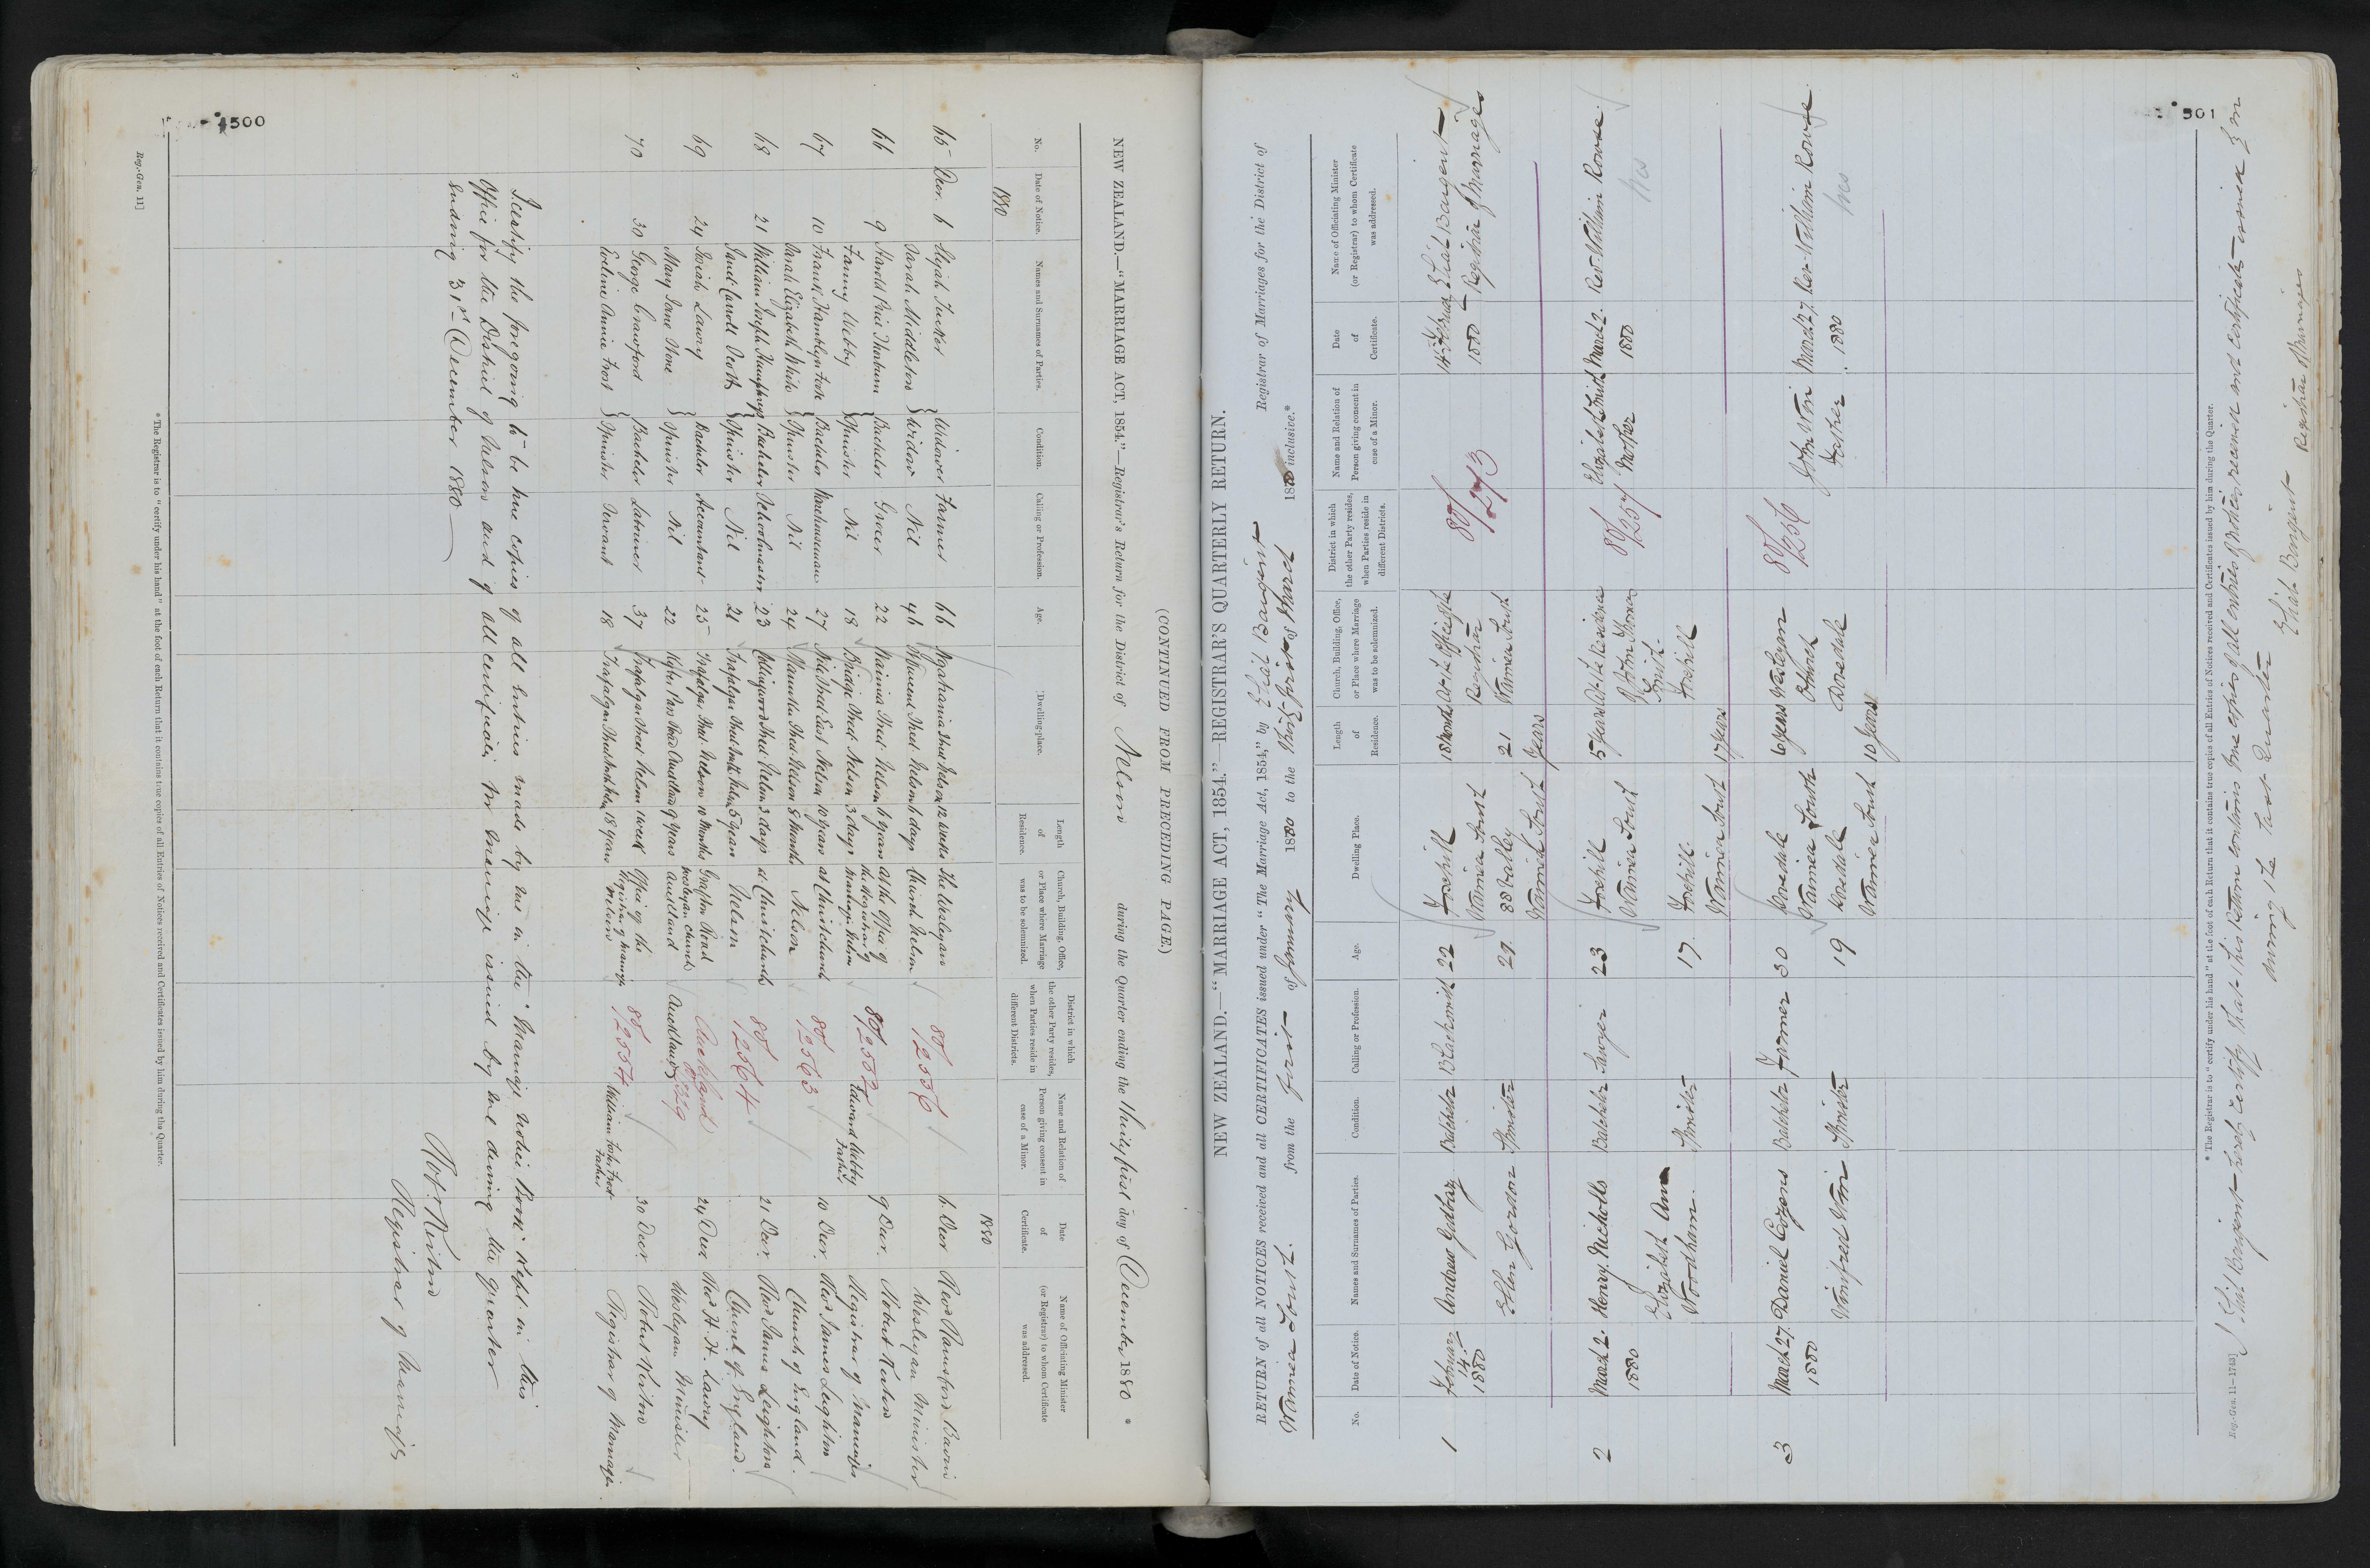 500
(CONTINUED FROM PRECEDING PAGE.)
NEW ZEALAND.—"MARRIAGE ACT, 1854."—Registrar's Return for the District of Nelson during the Quarter ending the Thirty first day of December 1880 *
No. Date of Notice. Names and Surnames of Parties. Condition. Calling or Profession. Age. Dwelling-place. Length of Residence. Church, Building, Office, or Place where Marriage was to be solemnized. District in which the other Party resides, when Parties reside in different Districts. Name and Relation of Person giving consent in case of a Minor. Date of Certificate. Name of Officiating Minister (or Registrar) to whom Certificate was addressed.
1880 1880
65 Decr. 6 Elijah Tucker Widower Farmer 66 Ngatitama Street Nelson 12 weeks The Wesleyan 80/2556 6. Decr Revd Rainsford Bavin
Sarah Middleton Widow Nil 46 Street Nelson 6 days Church Nelson Wesleyan Minister
66 9 Harold Price Bachelor Grocer 22 Waimea Street Nelson 6 years At the Office of 80/2552 9 Decr. Robert Kerton
Fanny Webby Spinster Nil 18 Bridge Street Nelson 3 days the Registrar of Marriages Nelson Edward Webby Father Registrar of Marriages
67 10 Frank Hamblyn Foote Bachelor Warehouseman 27 Nile Street East Nelson 10 years at Christchurch 80/2563 10 Decr. Revd James Leighton
Sarah Elizabeth White Spinster Nil 24 Street Nelson 8 months Nelson Church of England.
68 21 William Joseph Humphreys Bachelor Schoolmaster 23 Collingwood Street Nelson 3 days at Christchurch 80/2564 21 Decr. Revd James Leighton
Janet Carroll Scott Spinster Nil 21 Trafalgar Street South Nelson 5 years Nelson Church of England.
69 24 Josiah Lowry Bachelor Accountant 25 Trafalgar Street Nelson 10 months Grafton Road Auckland 24 Decr Revd H. H. Lawry
Mary Jane Hone Spinster Nil 22 Khyber Pass Road Auckland 9 years Wesleyan Church Auckland Auckland Wesleyan Minister
70 30 George Crawford Bachelor Labourer 37 Trafalgar Street Nelson 1 week Office of the 80/2554 30 Decr. Robert Kerton
Eveline Annie Frost Spinster Servant 18 Trafalgar Street South Nelson 18 years Registrar of Marriages Nelson William John Frost Father Registrar of Marriages.
I certify the foregoing to be true copies of all entries made by me in the "Marriage Notice Book" kept in this
Office for the District of Nelson and of all certificates for Marriage issued by me during the quarter
ending 31st December 1880
Robt. Kerton
Registrar of Marriages
* The Registrar is to "certify under his hand" at the foot of each Return that it contains true copies of all Entries of Notices received and Certificates issued by him during the Quarter.
Reg.-Gen. 11]
501
NEW ZEALAND.—"MARRIAGE ACT, 1854."—REGISTRAR'S QUARTERLY RETURN.
RETURN of all NOTICES received and all CERTIFICATES issued under "The Marriage Act, 1854," by Eliat Bargent Registrar of Marriages for the District of
Waimea South. from the first of January 1880 to the Thirty first of March 1880 inclusive.*
No. Date of Notice. Names and Surnames of Parties. Condition. Calling or Profession. Age. Dwelling Place. Length of Residence. Church, Building, Office, or Place where Marriage was to be solemnized. District in which the other Party resides, when Parties reside in different Districts. Name and Relation of Person giving consent in case of a Minor. Date of Certificate. Name of Officiating Minister (or Registrar) to whom Certificate was addressed.
1 February 14th 1880 Andrew Bachelor Blacksmith 22 Foxhill Waimea South 18 months At the Office of the Registrar Waimea South 80/1273 14th February 1880 Eliat Bargent Registrar of Marriages
Ellen Gordon Spinster 21 88 Valley Waimea South 21 Years
2 March 2. 1880 Henry Nicholls Bachelor Sawyer 23 Foxhill Waimea South 5 years At the Residence of John Thomas Smith Foxhill 80/1257 Elizabeth Smith Mother March 2. 1880 Rev. William Rowse.
Elizabeth Ann Woodham. Spinster 17. Foxhill. Waimea South 17 years
3 March 27. 1880 Daniel Cozens Bachelor Farmer 30 Dovedale Waimea South 6 years Wesleyan Church Dovedale 80/1256 John Win Father March 27. 1880 Rev. William Rowse
Winifred Win Spinster 19 Dovedale Waimea South 10 years
* The Registrar is to "certify under his hand" at the foot of each Return that it contains true copies of all Entries of Notices received and Certificates issued by him during the Quarter.
Reg.-Gen. 11—1743]
I Eliat Bargent hereby certify that this Return contains true copies of all entries of Notices received and certificates issued by me
during the last Quarter Eliat Bargent Registrar of Marriages